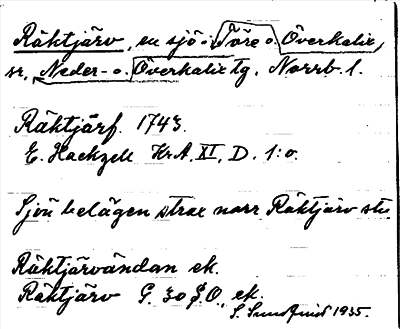 Räktjärv, en sjö i Töre o. Överkalix
sr, Neder- o. Överkalix tg. Norrb. l.
Räktjärf. 1743.
E. Hackzell KrA, XI, D. 1:o.
Sjön belägen strax norr Räktjärv stn
Räktjärvändan ek.
Räktjärv G. 30 S.O. ek.
S. Sundlind 1935.